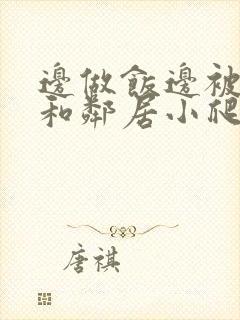 邊做飯邊被
和鄰居小爬
唐祺